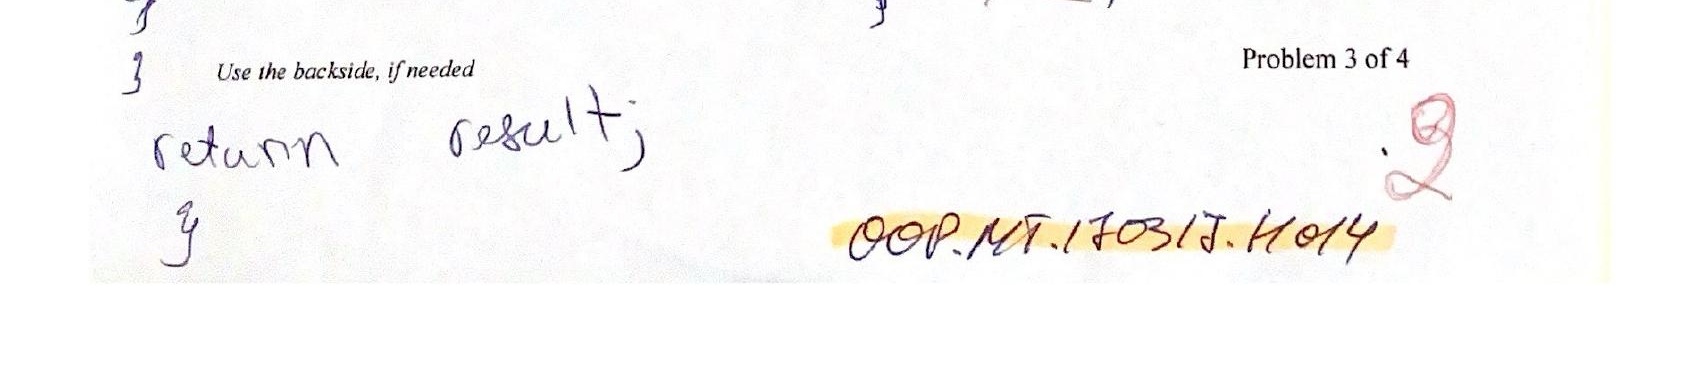 } }
} Use the backside, if needed Problem 3 of 4
return result;
2
} OOP.MT.170317.H014